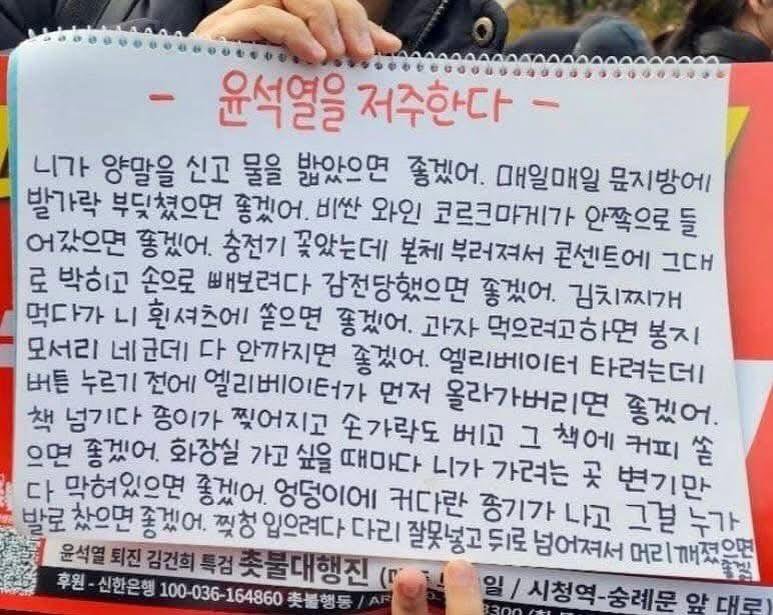 - 윤석열을 저주한다 -
니가 양말을 신고 물을 밟았으면 좋겠어. 매일매일 문지방에
발가락 부딪쳤으면 좋겠어. 비싼 와인 코르크마게가 안쪽으로 들
어갔으면 좋겠어. 충전기 꽂았는데 본체 부러져서 콘센트에 그대
로 박히고 손으로 빼보려다 감전당했으면 좋겠어. 김치찌개
먹다가 니 흰셔츠에 쏟으면 좋겠어. 과자 먹으려고하면 봉지
모서리 네군데 다 안까지면 좋겠어. 엘리베이터 타려는데
버튼 누르기 전에 엘리베이터가 먼저 올라가버리면 좋겠어.
책 넘기다 종이가 찢어지고 손가락도 베고 그 책에 커피 쏟
으면 좋겠어. 화장실 가고 싶을 때마다 니가 가려는 곳 변기만
다 막혀있으면 좋겠어. 엉덩이에 커다란 종기가 나고 그걸 누가
발로 찼으면 좋겠어. 찢청 입으려다 다리 잘못넣고 뒤로 넘어져서 머리 깨졌으면
좋겠어
윤석열 퇴진 김건희 특검 촛불대행진 ( 일 / 시청역-숭례문 앞 대로)
후원 - 신한은행 100-036-164860 촛불행동 / AR 3300